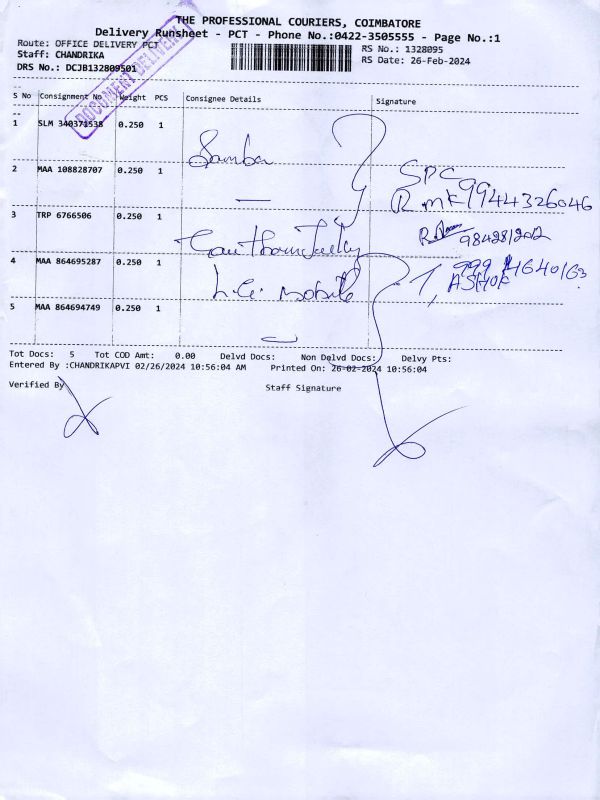 THE PROFESSIONAL COURIERS, COIMBATORE
Delivery Runsheet - PCT - Phone No.:0422-3505555 - Page No.:1
Route: OFFICE DELIVERY PCT
RS No.: 1328095
Staff: CHANDRIKA
RS Date: 26-Feb-2024
DRS No.: DCJB132809501
DOCUMENT DELIVERY
S No Consignment No Weight PCS Consignee Details Signature
1 SLM 340371538 0.250 1
Samba
2 MAA 108828707 0.250 1
SPC
9944326046
3 TRP 6766506 0.250 1
4 MAA 864695287 0.250 1
Mobile
ASHOK
5 MAA 864694749 0.250 1
Tot Docs: 5 Tot COD Amt: 0.00 Delvd Docs: Non Delvd Docs: Delvy Pts:
Entered By :CHANDRIKAPVI 02/26/2024 10:56:04 AM Printed On: 26-02-2024 10:56:04
Verified By
Staff Signature